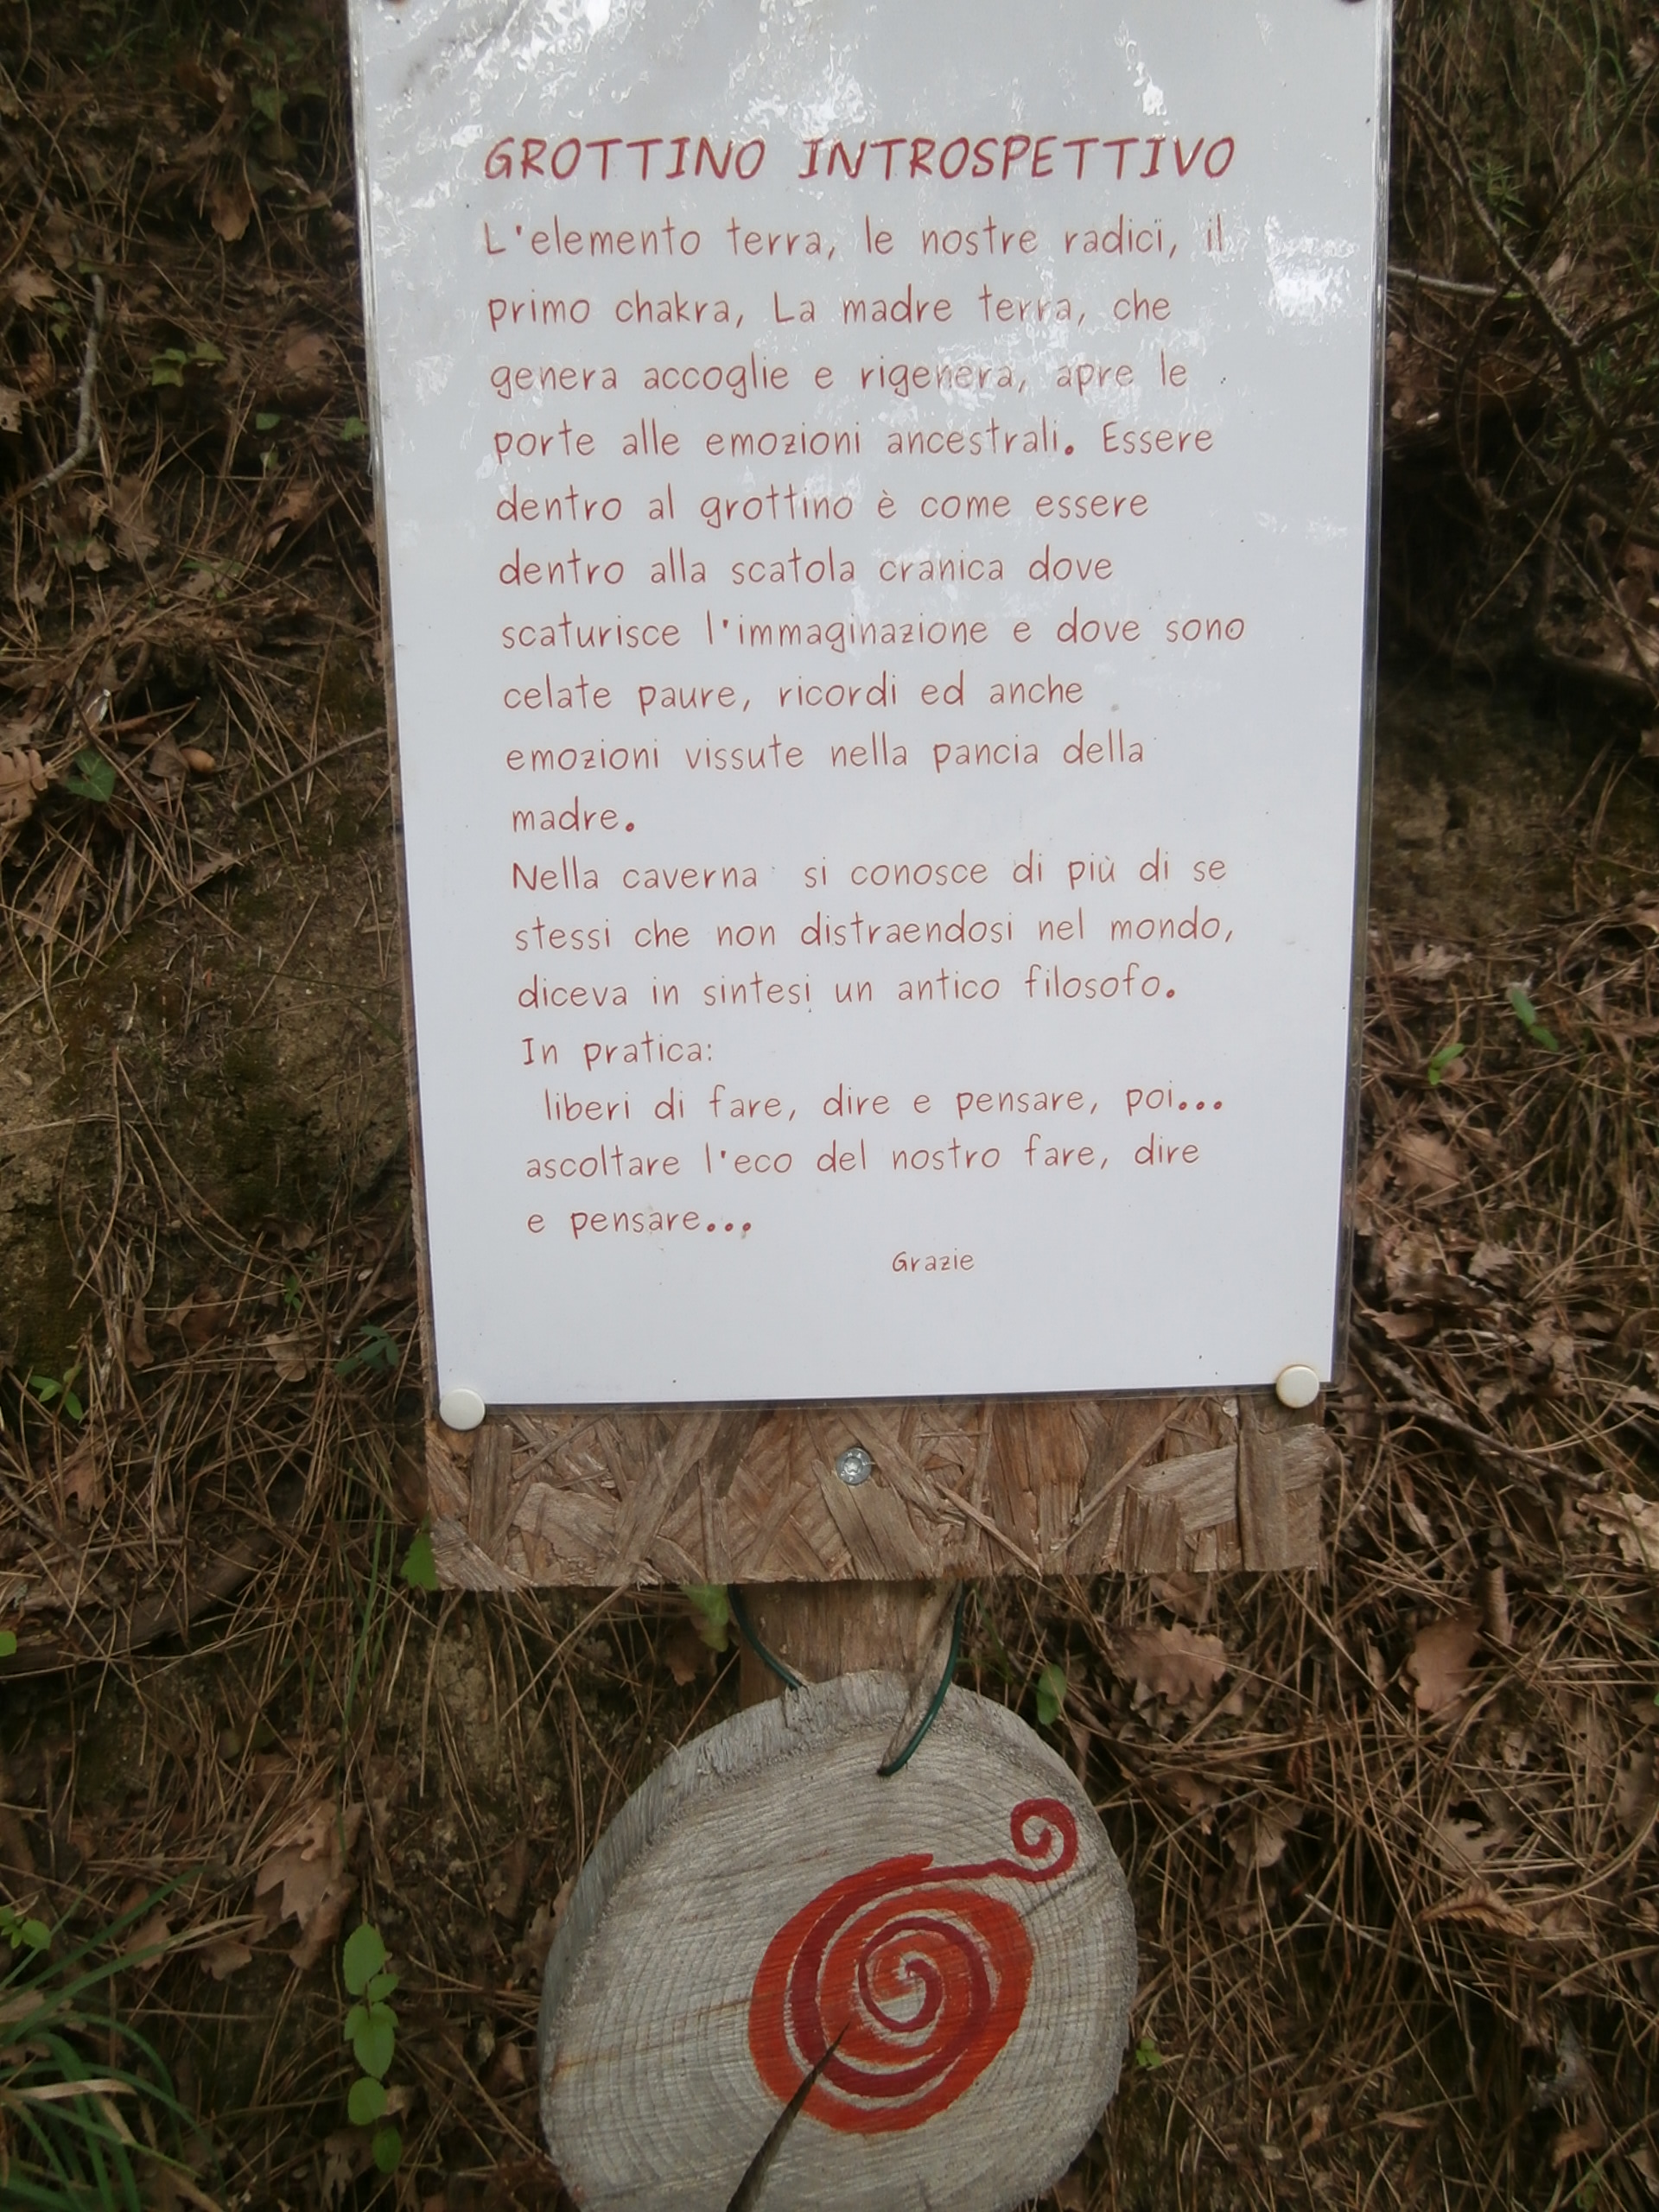 GROTTINO INTROSPETTIVO
L'elemento terra, le nostre radici, il
primo chakra, La madre terra, che
genera accoglie e rigenera, apre le
porte alle emozioni ancestrali. Essere
dentro al grottino è come essere
dentro alla scatola cranica dove
scaturisce l'immaginazione e dove sono
celate paure, ricordi ed anche
emozioni vissute nella pancia della
madre.
Nella caverna si conosce di più di se
stessi che non distraendosi nel mondo,
diceva in sintesi un antico filosofo.
In pratica:
liberi di fare, dire e pensare, poi...
ascoltare l'eco del nostro fare, dire
e pensare...
Grazie